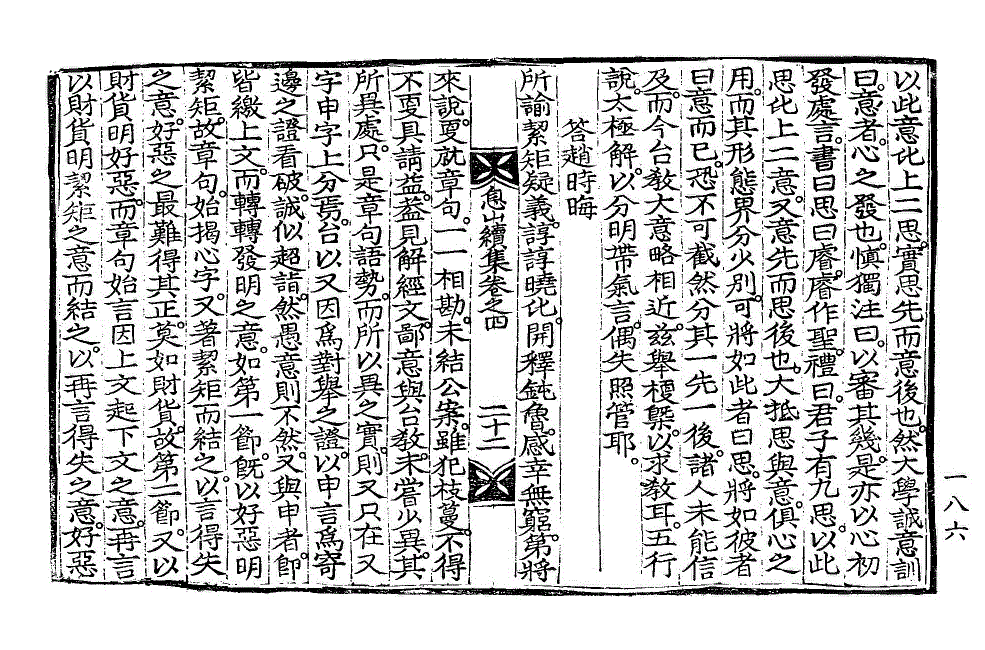 以此意比上二思。實思先而意後也。然大學誠意訓
曰。意者。心之發也。愼獨注曰。以審其幾。是亦以心初
發處言。書曰思曰睿。睿作聖。禮曰。君子有九思。以此
思比上二意。又意先而思後也。大抵思與意。俱心之
用。而其形態界分少別。可將如此者曰思。將如彼者
曰意而已。恐不可截然分其一先一後。諸人未能信
及。而今台敎大意略相近。玆擧梗槩。以求敎耳。五行
說。太極解。以分明帶氣言。偶失照管耶。
答趙時晦
所諭絜矩疑義。諄諄曉比。開釋鈍魯。感幸無窮。第將
息山續集卷之四
二十二
來說。更就章句。一一相勘。未結公案。雖犯枝蔓。不得
不更具請益。蓋見解經文。鄙意與台敎。未嘗少異。其
所異處。只是章句語勢。而所以異之實。則又只在又
字申字上分焉。台以又因爲對擧之證。以申言爲寄
邊之證看破。誠似超詣。然愚意則不然。又與申者。卽
皆繳上文。而轉轉發明之意。如第一節。旣以好惡明
絜矩。故章句。始揭心字。又著絜矩而結之。以言得失
之意。好惡之最難得其正。莫如財貨。故第二節。又以
財貨明好惡。而章句始言因上文起下文之意。再言
以財貨明絜矩之意而結之。以再言得失之意。好惡
一八六